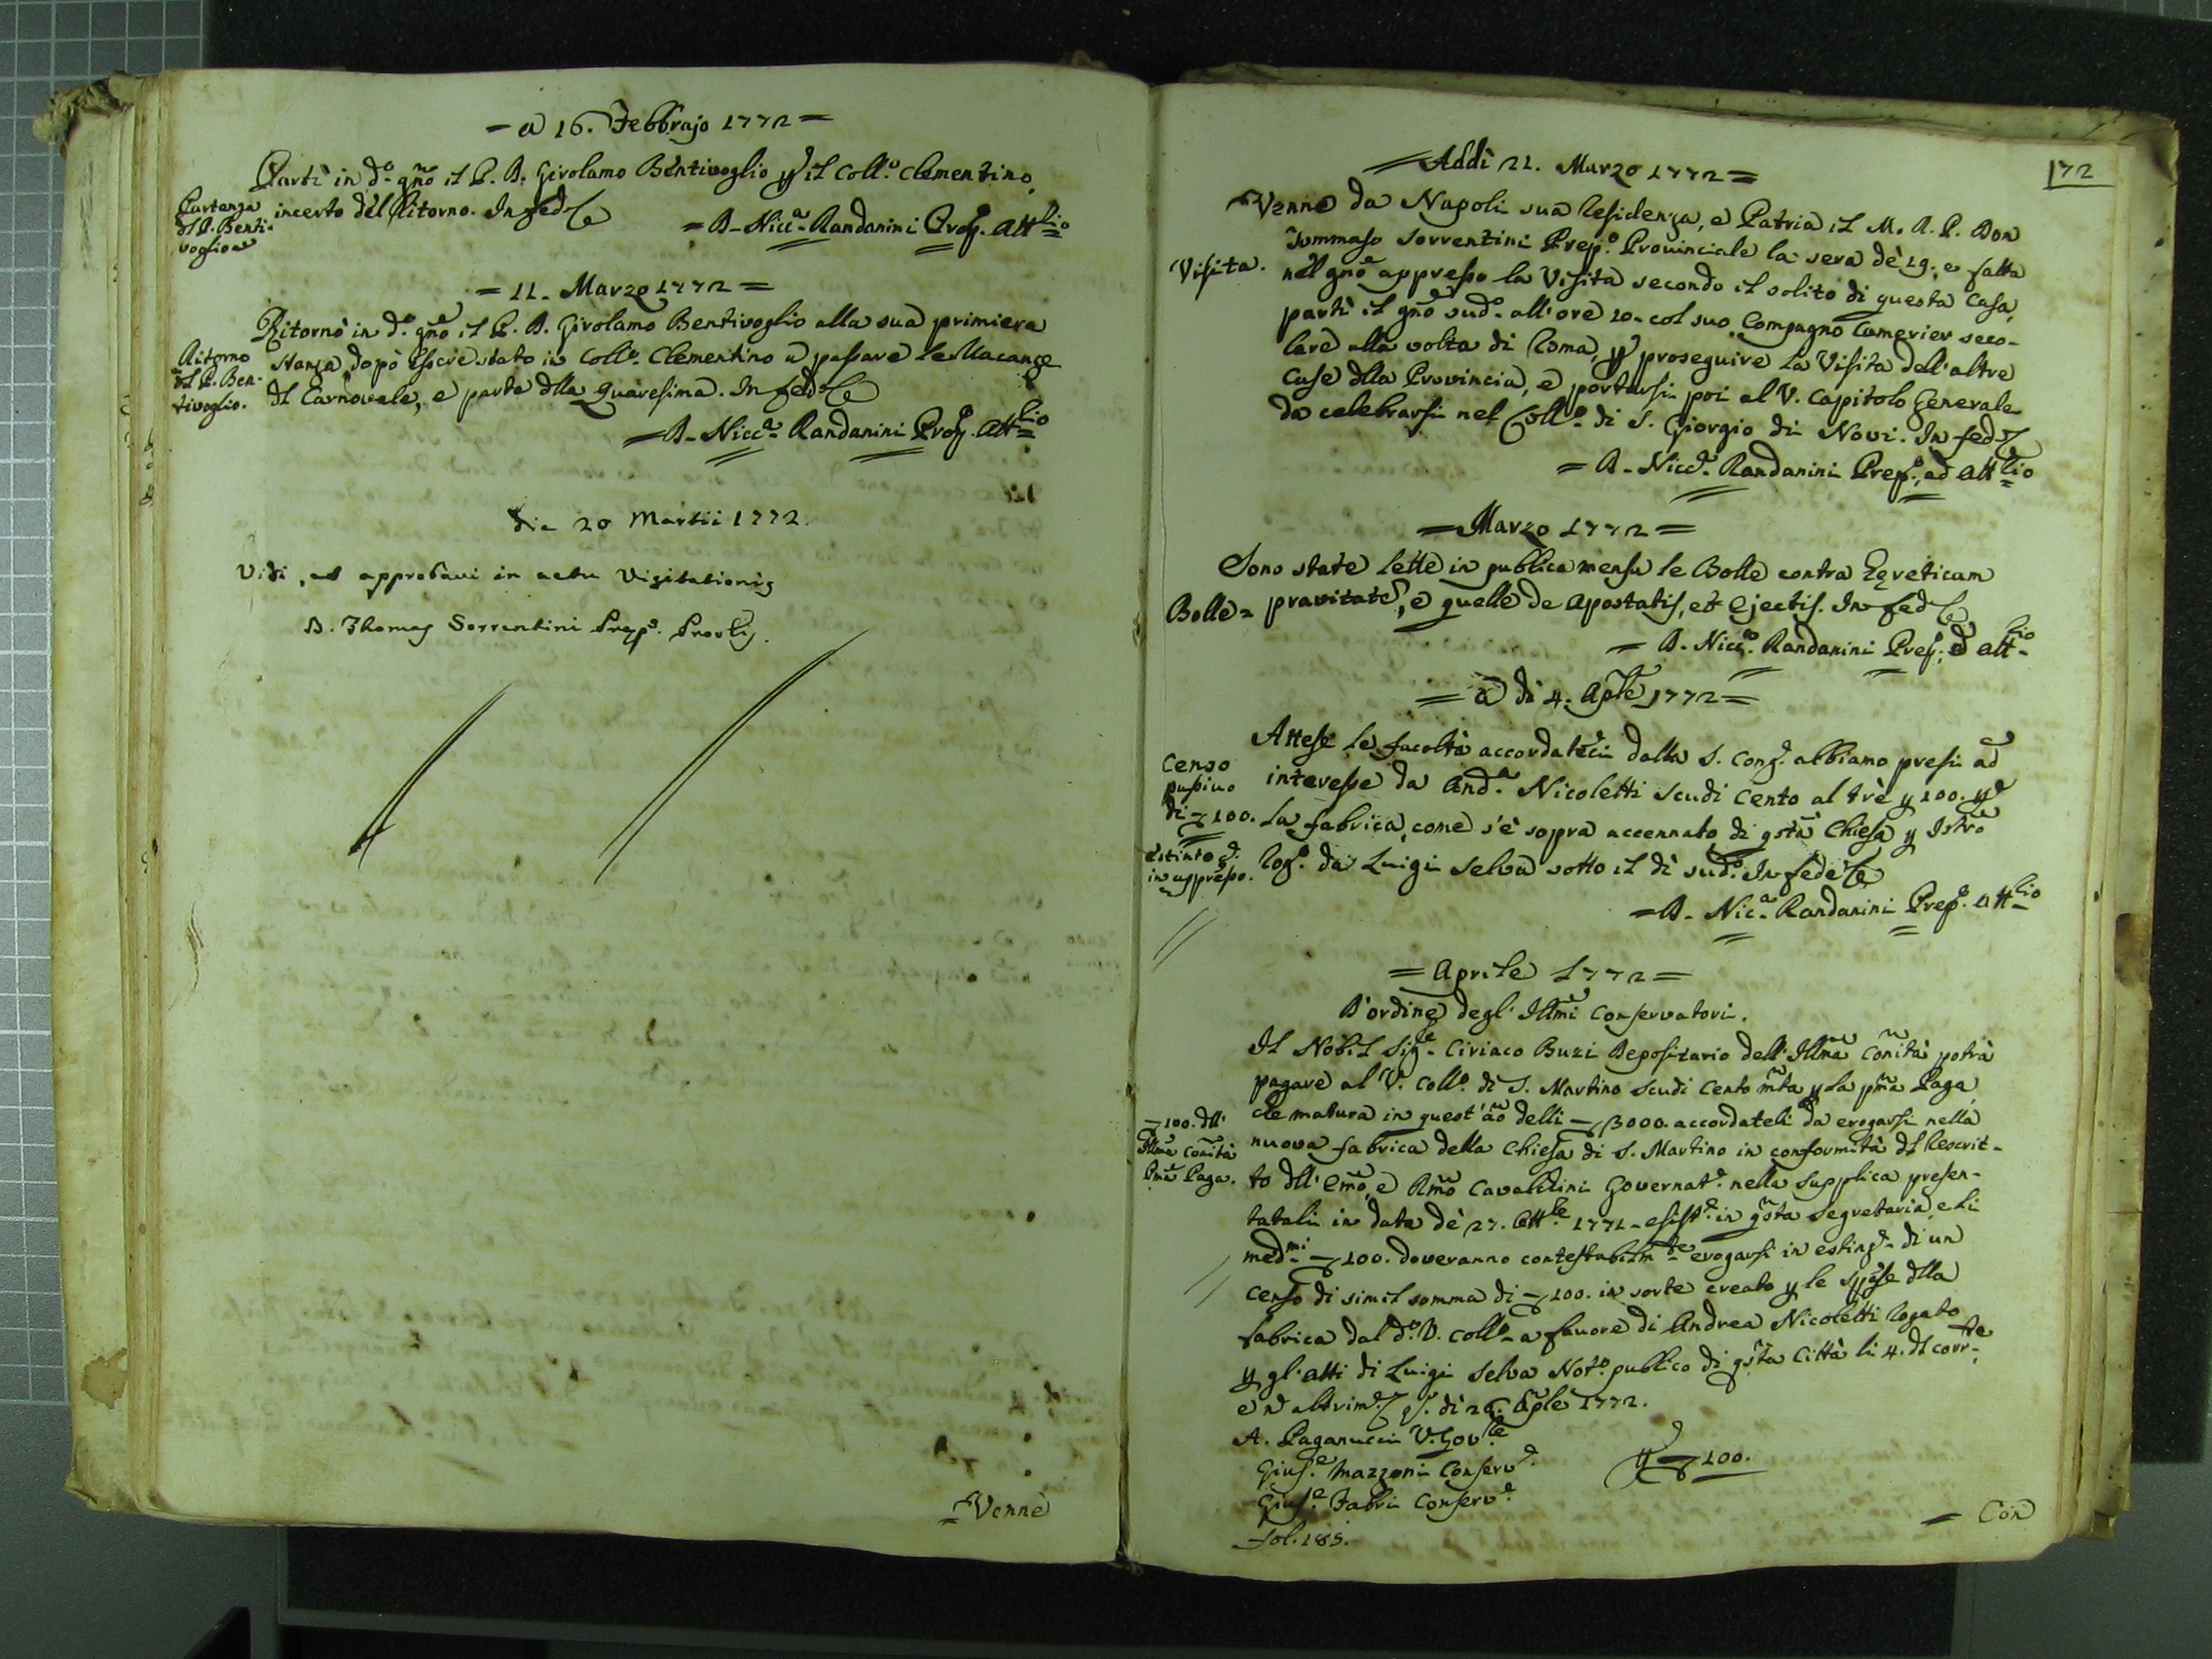 = a 16. Febbrajo 1772 =
Partì in d.º gñō il P. D. Girolamo Bentivoglio p il Coll.º Clementino,
incerto del Ritorno. In fede &c.
Partenza
dl P. Benti-
voglio
= D. Nicc.ª Randanini Prep.º Att.lio
= 11. Marzo 1772 =
Ritornò in d.º gñō il P. D. Girolamo Bentivoglio alla sua primiera
stanza, dopo essere stato in Coll.º Clementino a passare le Vacanze
dl Carnovale, e parte dlla Quaresima. In fede &c.
Ritorno
dl P. Ben-
tivoglio.
= D. Nicc.ª Randanini Prep.º Att.lio
Die 20 Martii 1772.
Vidi, et approbavi in actu Visitationis
D. Thomas Sorrentini Prep.s Prov.lis.
= Venne
172
= Addì 21. Marzo 1772 =
Venne da Napoli sua Residenza, e Patria il M. R. P. Don
Tommaso Sorrentini Prep.º Provinciale la sera dè 19., e fatta
nel gñō appresso la Visita secondo il solito di questa Casa,
partì il gñō sud.º all'ore 20. col suo Compagno Camerier seco-
lare alla volta di Roma p proseguire la Visita dell'altre
Case dlla Provincia, e portarsi poi al V. Capitolo Generale
da celebrarsi nel Coll.º di S. Giorgio di Novi. In fede &c.
Visita.
= D. Nicc.ª Randanini Prep.º, ed Att.lio
= Marzo 1772 =
Sono state lette in publica mensa le Bolle contra Ereticam
pravitatē, e quelle de Apostatis, et Ejectis. In fede &c.
Bolle =
= D. Nicc.ª Randanini Prep.º, ed Att.lio
= a dì 4. Aple 1772 =
Attese le facoltà accordateci dalla S. Cong.e abbiamo presi ad
interesse da And.ª Nicoletti scudi Cento al trè p 100. p
la fabrica, come s'è sopra accennato di qsta Chiesa p Istr.º
Rog.º da Luigi Selva sotto il dì sud.º In fede &c.
Censo
passivo
di 100.
Estinto
in appresso.
= D. Nic.ª Randanini Prep.º Att.lio
= Aprile 1772 =
D'ordine degl' Illmi Conservatori.
Il Nobil Sig.e Ciriaco Buzi Depositario dell' Illma Comità potrà
pagare al V. Coll.º di S. Martino scudi Cento mta p la pma Paga,
che matura in quest' año delli 3000. accordateli da erogarsi nella
nuova fabrica della Chiesa di S. Martino in conformità dl Rescrit-
to dll' Emo, e Rmo Cavalchini Governat.e nella Supplica presen-
tatali in data dè 27. Att.le 1771. esist.e in qsta Segretaria, e li
med.mi 100. doveranno contestabilm.te erogarsi in estinz.e di un
Censo di simil somma di 100. in sorte creato p le spese dlla
fabrica dal d.º V. Coll.º a favore di Andrea Nicoletti Rogato
p gl'atti di Luigi Selva Not.º publico di qsta Città li 4. dl corr.te
e ñ altrim.e &c. q.º dì 26. Aple 1772.
100. dll'
Illma Comità
Pma Paga.
A. Paganucci V. Gov.re
Gius.e Mazzoni Conserv.e
Gius.e Fabri Conserv.e
p 100.
fol. 185.
= Con